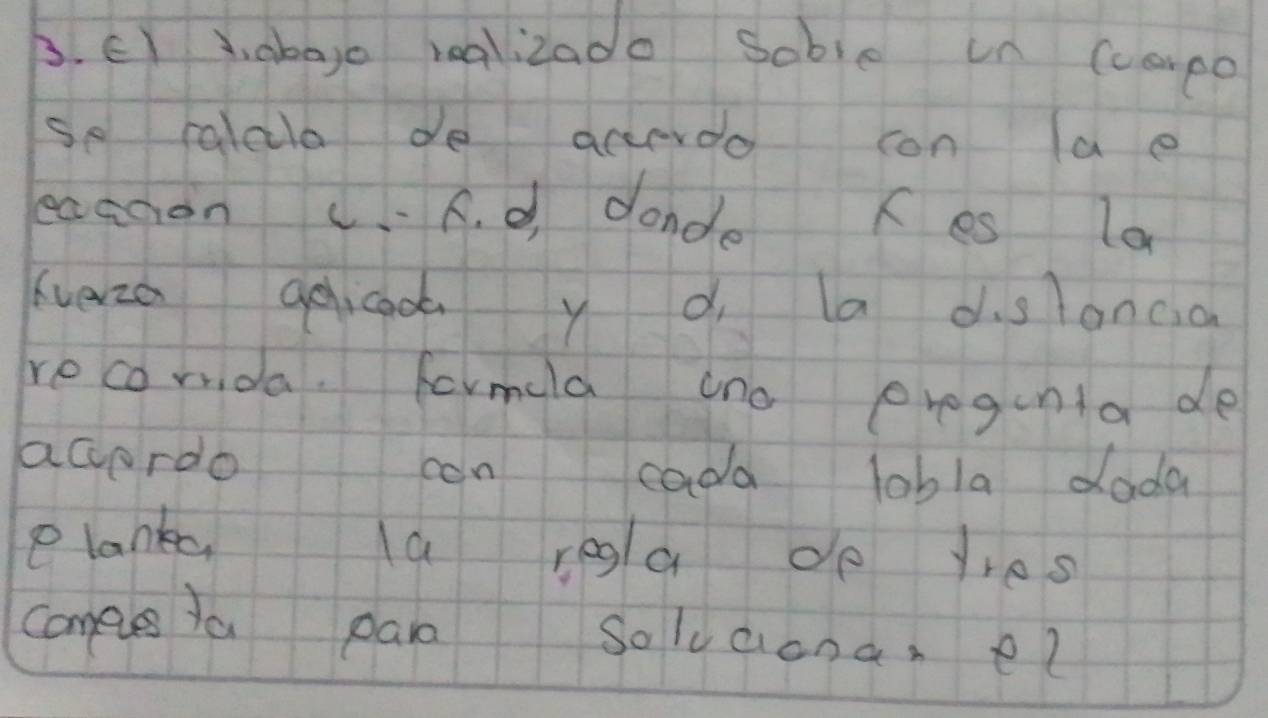 3. El trabajo realizado sobre un cuerpo
se calcula de acuerdo con la e
cuación F. d, donde F es la
fuerza aplicada y d, la distancia
recorrida. formula una pregunta de
acuerdo con cada tabla dada
plantea la regla de tres
compuesta para solucionar el